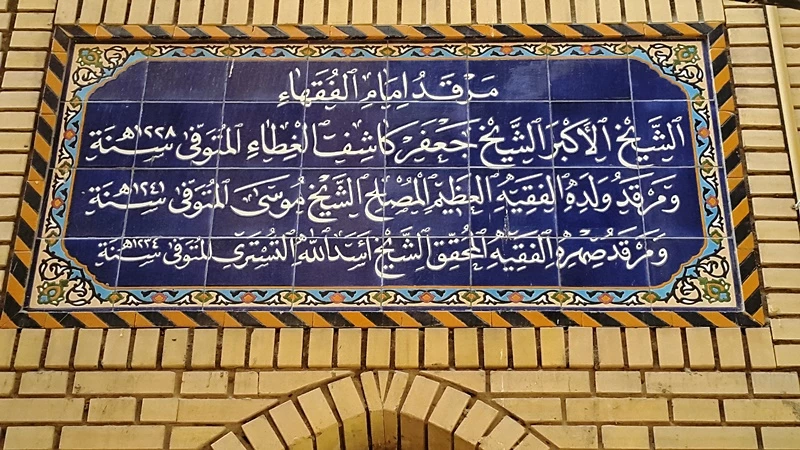 مَرْقَدُ اِمَامِ الفُقَهَاءِ
الشَّيخ الأَكْبَر الشَّيخ جَعْفَر كَاشِف الغِطَاءِ المُتَوَفَّى سَنَة ١٢٢٨هـ
وَمَرْقَدُ وَلَدِهِ الفَقِيهِ العَظِيمِ المُصْلِح الشَّيخ مُوسَى المُتَوَفَّى سَنَة ١٢٤١هـ
وَمَرْقَدُ صِهْرِهِ الفَقِيهِ المُحَقِّق الشَّيخ أَسَدُ اللهِ التُّسْتَرِي المُتَوَفَّى سَنَة ١٢٣٤هـ